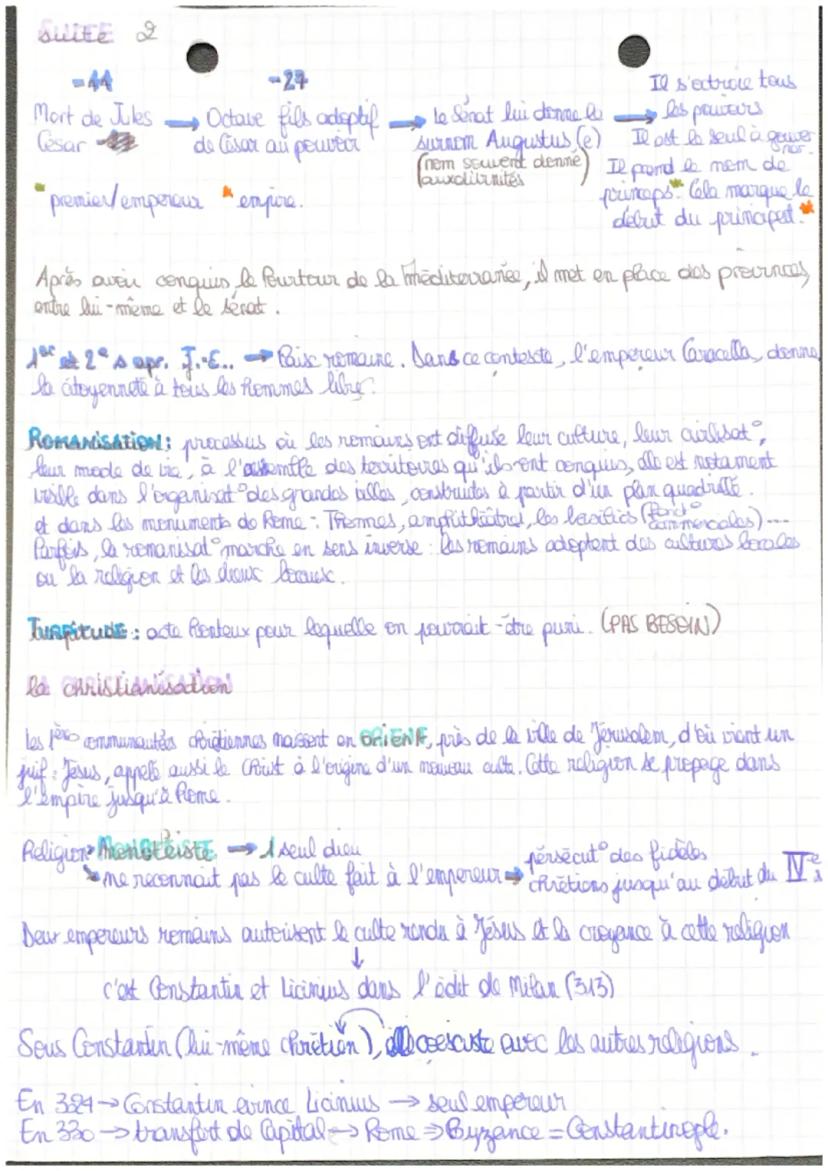 SUITE 2
-44
-27
Mort de Jules César → Octave fils adoptif de César au pouvoir → le Sénat lui donne le surnom Augustus (e) (nom souvent donné aux divinités) → Il s'octroie tous les pouvoirs
Il est le seul à gouverner.
Il prend le nom de princeps*. Cela marque le début du principat.*
* premier/empereur * empire.
Après avoir conquis le Pourtour de la méditerranée, il met en place des provinces,
entre lui-même et le sénat.
1er et 2e s apr. J.-C.. → Paix romaine. Dans ce contexte, l'empereur Caracalla, donne
la citoyenneté à tous les hommes libre.
ROMANISATION : processus où les romains ont diffusé leur culture, leur civilisat°,
leur mode de vie, à l'ensemble des territoires qu'ils ont conquis, elle est notament
visible dans l'organisat° des grandes villes, construites à partir d'un plan quadrillé.
et dans les monuments de Rome : Thermes, amphithéâtres, les basilics (commerciales)...
Parfois, la romanisat° marche en sens inverse : les romains adoptent des cultures locales
ou la religion et les dieux locaux.
TURPITUDE : acte honteux pour lequelle on pourrait-être puni. (PAS BESOIN)
la christianisation
Les 1ères communautés chrétiennes naissent en ORIENT, près de la ville de Jérusalem, d'où vient un
juif : Jésus, appelé aussi le Christ à l'origine d'un nouveau culte. Cette religion se propage dans
l'empire jusqu'à Rome.
Religion Monotéiste → 1 seul dieu
ne reconnait pas le culte fait à l'empereur → persécut° des fidèles chrétiens jusqu'au début du IVe s
Deux empereurs romains autorisent le culte rendu à Jésus et la croyance à cette religion
↓
c'est Constantin et Licinius dans l'édit de Milan (313)
Sous Constantin (lui-même chrétien), elle coexiste avec les autres religions.
En 324 → Constantin évince Licinius → seul empereur
En 330 → transfert de Capital → Rome ⇒ Byzance = Constantinople.